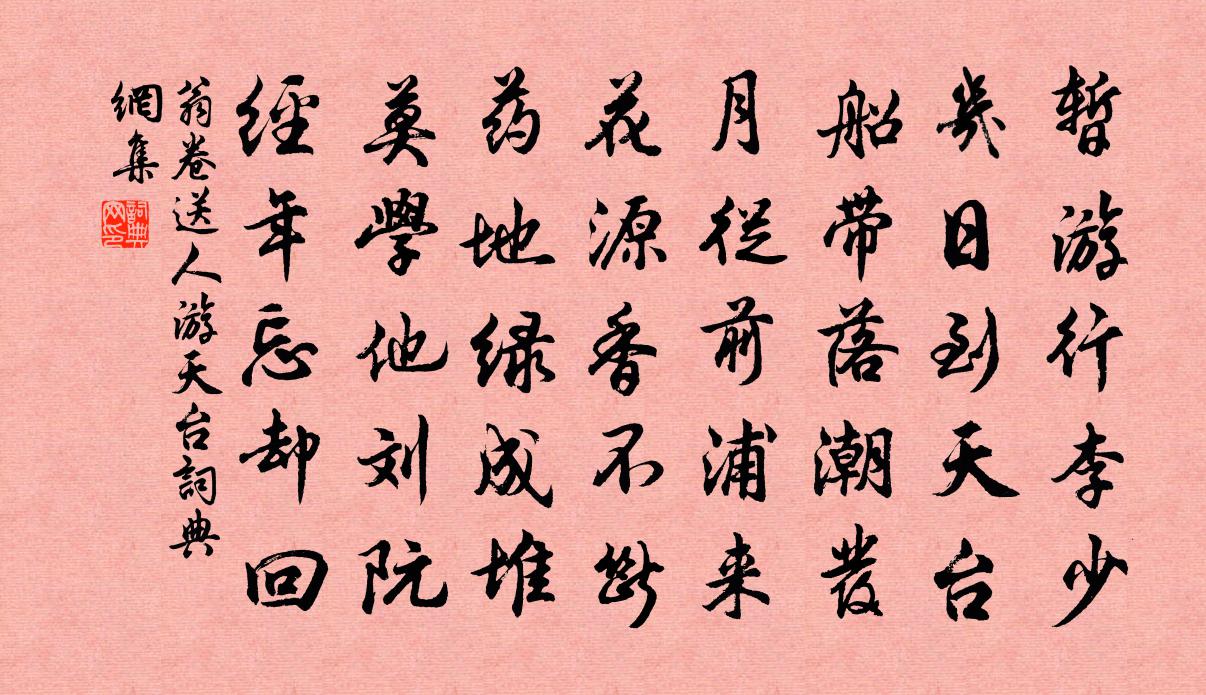 暂游行李少
幾日到天台
船带落潮發
月從前浦来
花源香不断
药地绿成堆
莫學他刘阮
經年忘却回
翁卷送人游天台詞典
網集
詞典網印